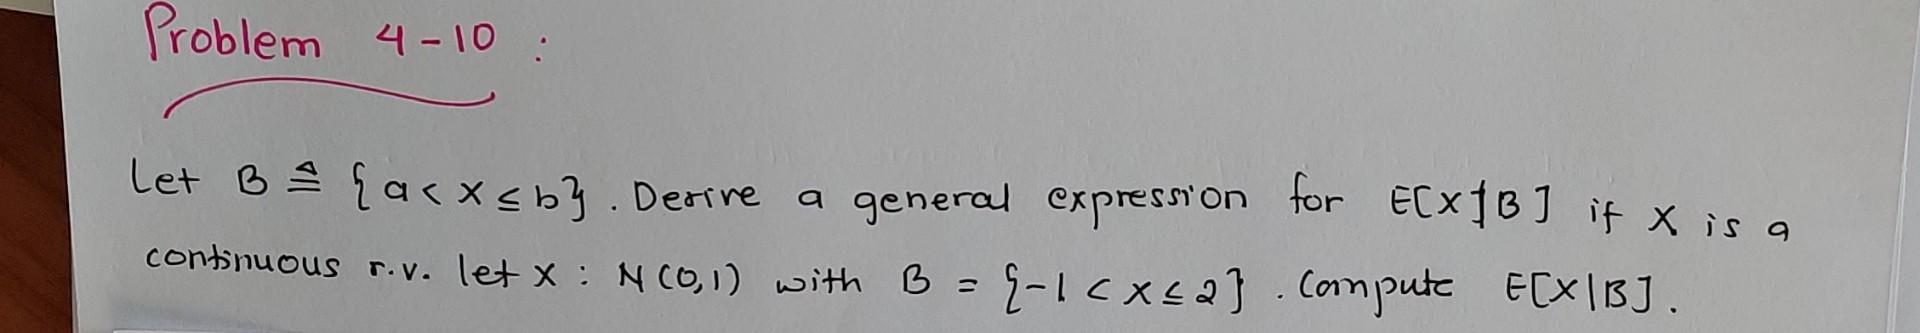 Problem 4-10 :
Let B ≜ {a < X ≤ b}. Derive a general expression for E[X|B] if X is a
continuous r.v. let X : N(0,1) with B = {-1 < X ≤ 2}. Compute E[X|B].